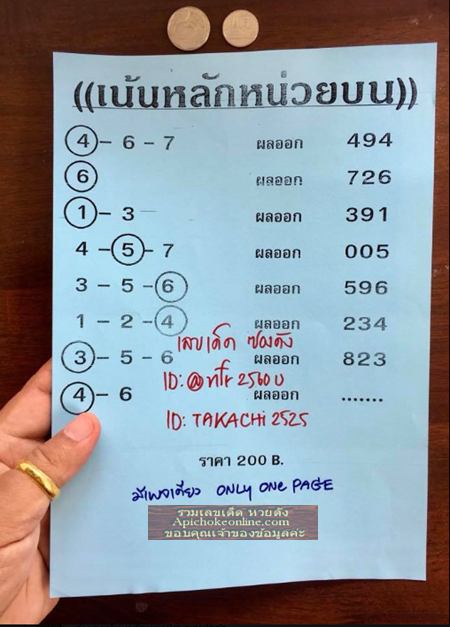 ((เน้นหลักหน่วยบน))
4 - 6 - 7 ผลออก 494
6 ผลออก 726
1 - 3 ผลออก 391
4 - 5 - 7 ผลออก 005
3 - 5 - 6 ผลออก 596
1 - 2 - 4 ผลออก 234
เลขเด็ด ซองดัง
3 - 5 - 6 ผลออก 823
ID: @ 2560
4 - 6 ผลออก .......
ID: TAKACHi 2525
ราคา 200 B.
มีเพจเดียว ONLY ONE PAGE
รวมเลขเด็ด หวยดัง
Apichokeonline.com
ขอบคุณเจ้าของข้อมูลค่ะ